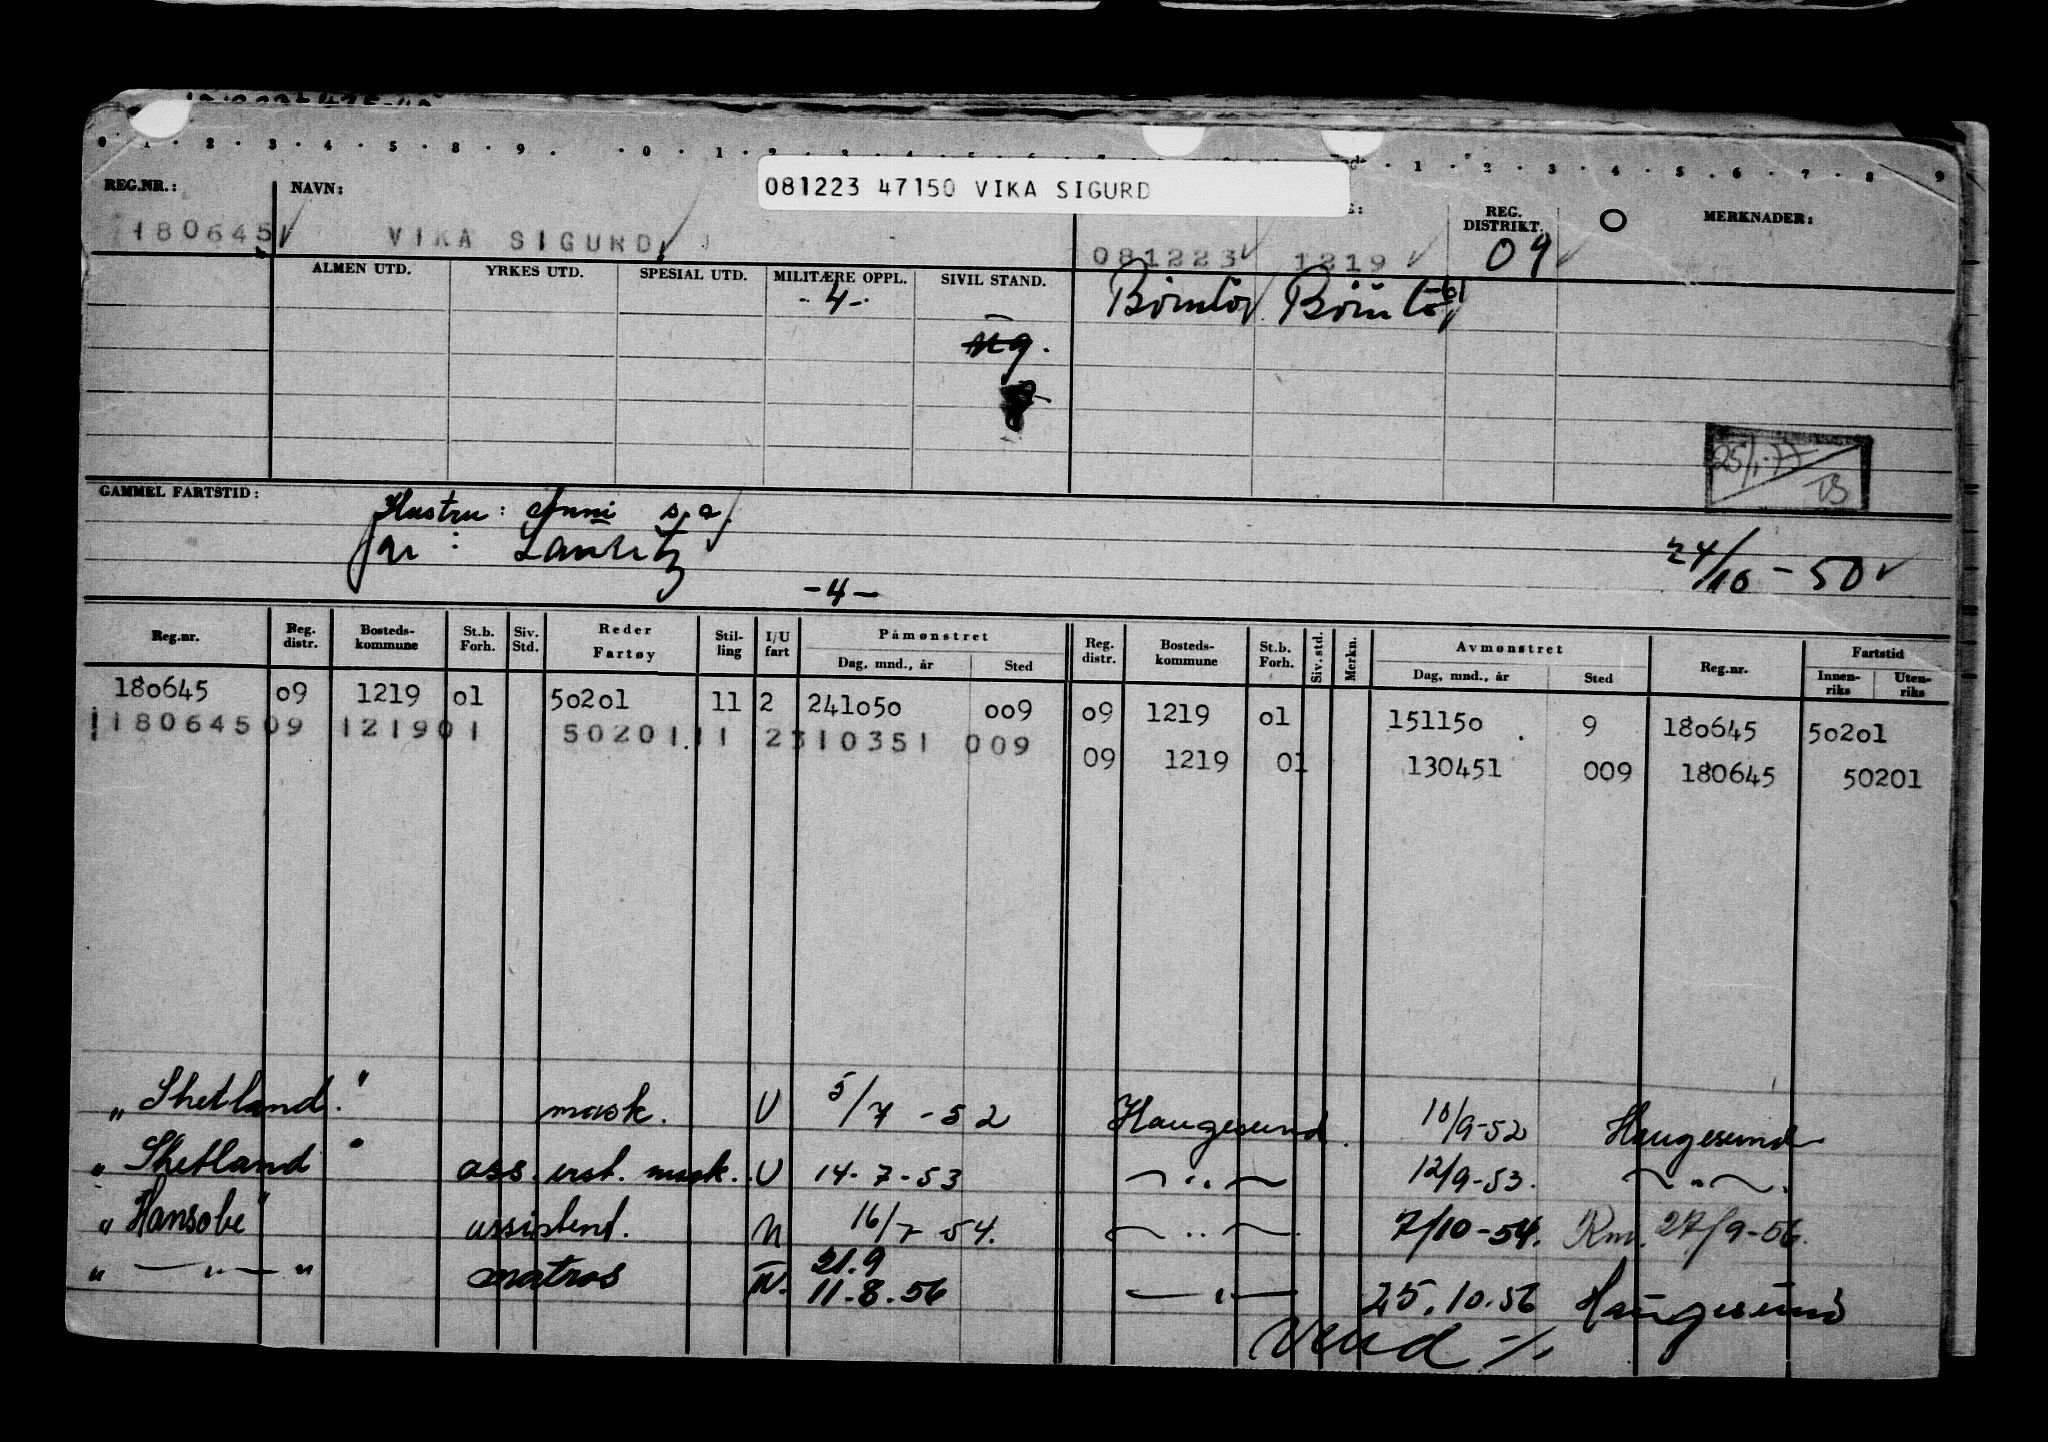 0 · 1 · 2 · 3 · 4 · 5 · 8 · 9 · · 0 · 1 · 2 · 3 · 4 · 5 · 6 · 7 · · 1 · 2 · 3 · 4 · 5 · 6 · 7 · 8 · 9
081223 47150 VIKA SIGURD
REG.NR.: NAVN: REG. DISTRIKT. O MERKNADER:
180645 VIKA SIGURD 081223 1219 09
ALMEN UTD. YRKES UTD. SPESIAL UTD. MILITÆRE OPPL. SIVIL STAND.
-4- Bömlo Bömlo 61
ug.
25/1-77
TB
GAMMEL FARTSTID: Hustru: Anni s.a.
far: Lauritz
24/10-50
-4-
Reg.nr. Reg. distr. Bosteds-kommune St.b. Forh. Siv. Std. Reder Fartøy Stil-ling I/U fart Påmønstret Dag, mnd., år Sted Reg. distr. Bosteds-kommune St.b. Forh. Siv. std. Merkn. Avmønstret Dag, mnd., år Sted Reg.nr. Fartstid Innen-riks Uten-riks
180645 09 1219 01 50201 11 2 241050 009 09 1219 01 151150 9 180645 50201
180645 09 1219 01 50201 11 2310351 009 09 1219 01 130451 009 180645 50201
"Shetland." mask. U 5/7-52 Haugesund. 10/9-52 Haugesund
"Shetland" ass. erst. mask. U 14-7-53 — " — 12/9-53. — " —.
"Hansobe" assistent. N 16/7 54. — " — 7/10-54. Rm. 27/9-56.
" — " — " matros N. 21.9 11.8.56 — " — 25.10.56 Haugesund
Vend -/.